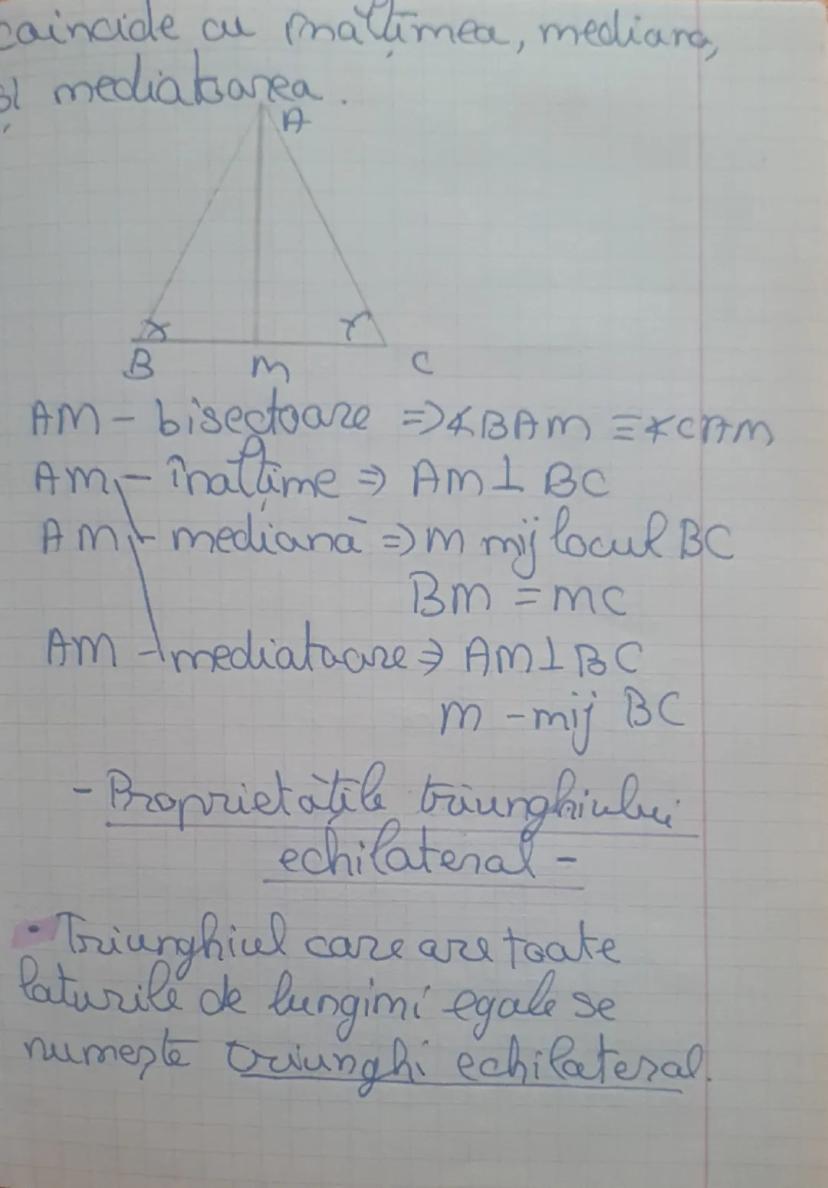 coincide cu înălțimea, mediana,
și mediatoarea.
A
B M C
AM - bisectoare => ∢BAM ≡ ∢CAM
AM - înălțime => AM ⊥ BC
AM - mediană => M mijlocul BC
BM = MC
AM - mediatoare => AM ⊥ BC
M - mij BC
- Proprietățile triunghiului
echilateral -
• Triunghiul care are toate
laturile de lungimi egale se
numește triunghi echilateral.